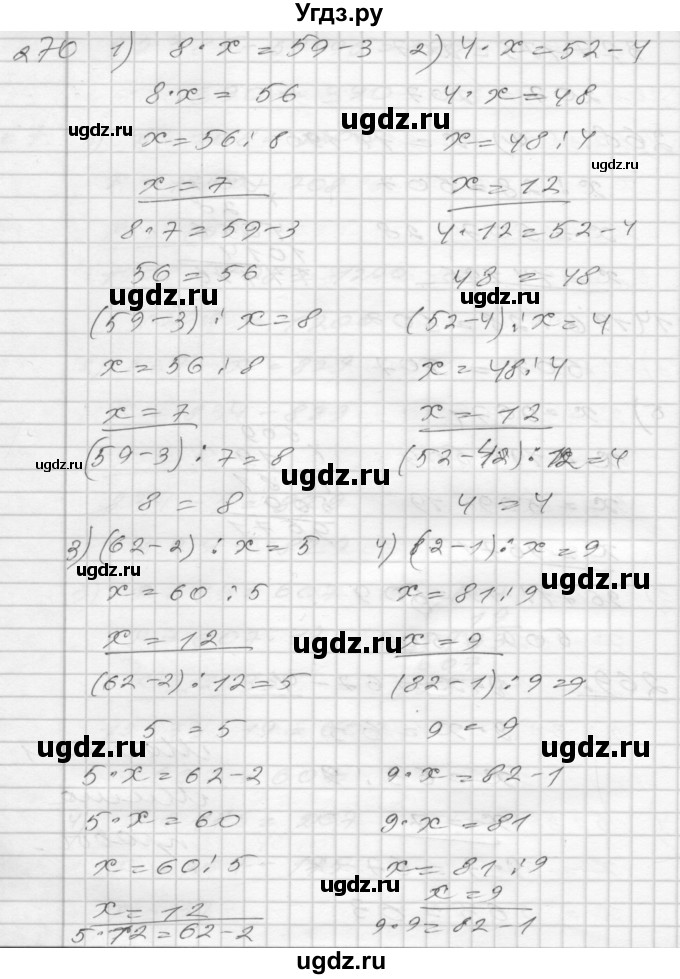 Угдз.ру
270 1) 8·x=59-3 2) 4·x=52-4
8·x=56 4·x=48
ugdz.ru ugdz.ru
x=56:8 x=48:4
ugdz.ru
x=7 x=12
8·7=59-3 4·12=52-4
56=56 48=48
ugdz.ru ugdz.ru
(59-3):x=8 (52-4):x=4
x=56:8 x=48:4
x=7 x=12
(59-3):7=8 (52-4):12=4
ugdz.ru ugdz.ru
8=8 4=4
3) (62-2):x=5 4) (2-1):x=9
ugdz.ru ugdz.ru
x=60:5 x=81:9
x=12 x=9
ugdz.ru
(62-2):12=5 (82-1):9=9
5=5 9=9
ugdz.ru ugdz.ru
5·x=62-2 9·x=82-1
5·x=60 9·x=81
x=60:5 x=81:9
ugdz.ru ugdz.ru
x=12 x=9
5·12=62-2 9·9=82-1
ugdz.ru